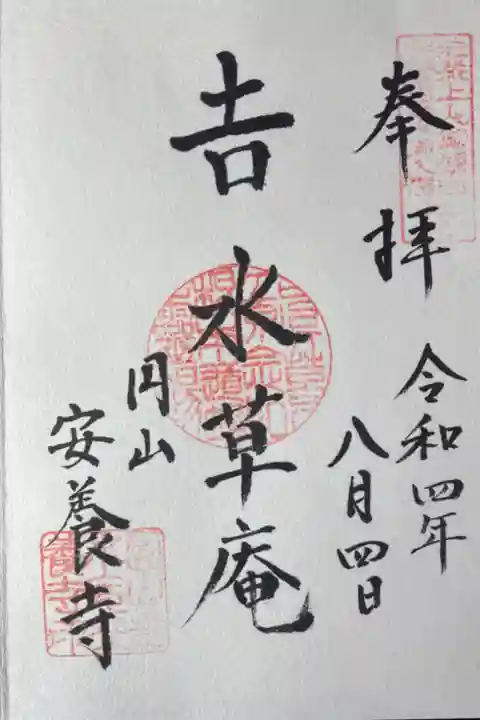 奉拝
令和四年
八月四日
𠮷水草庵
円山
安養寺